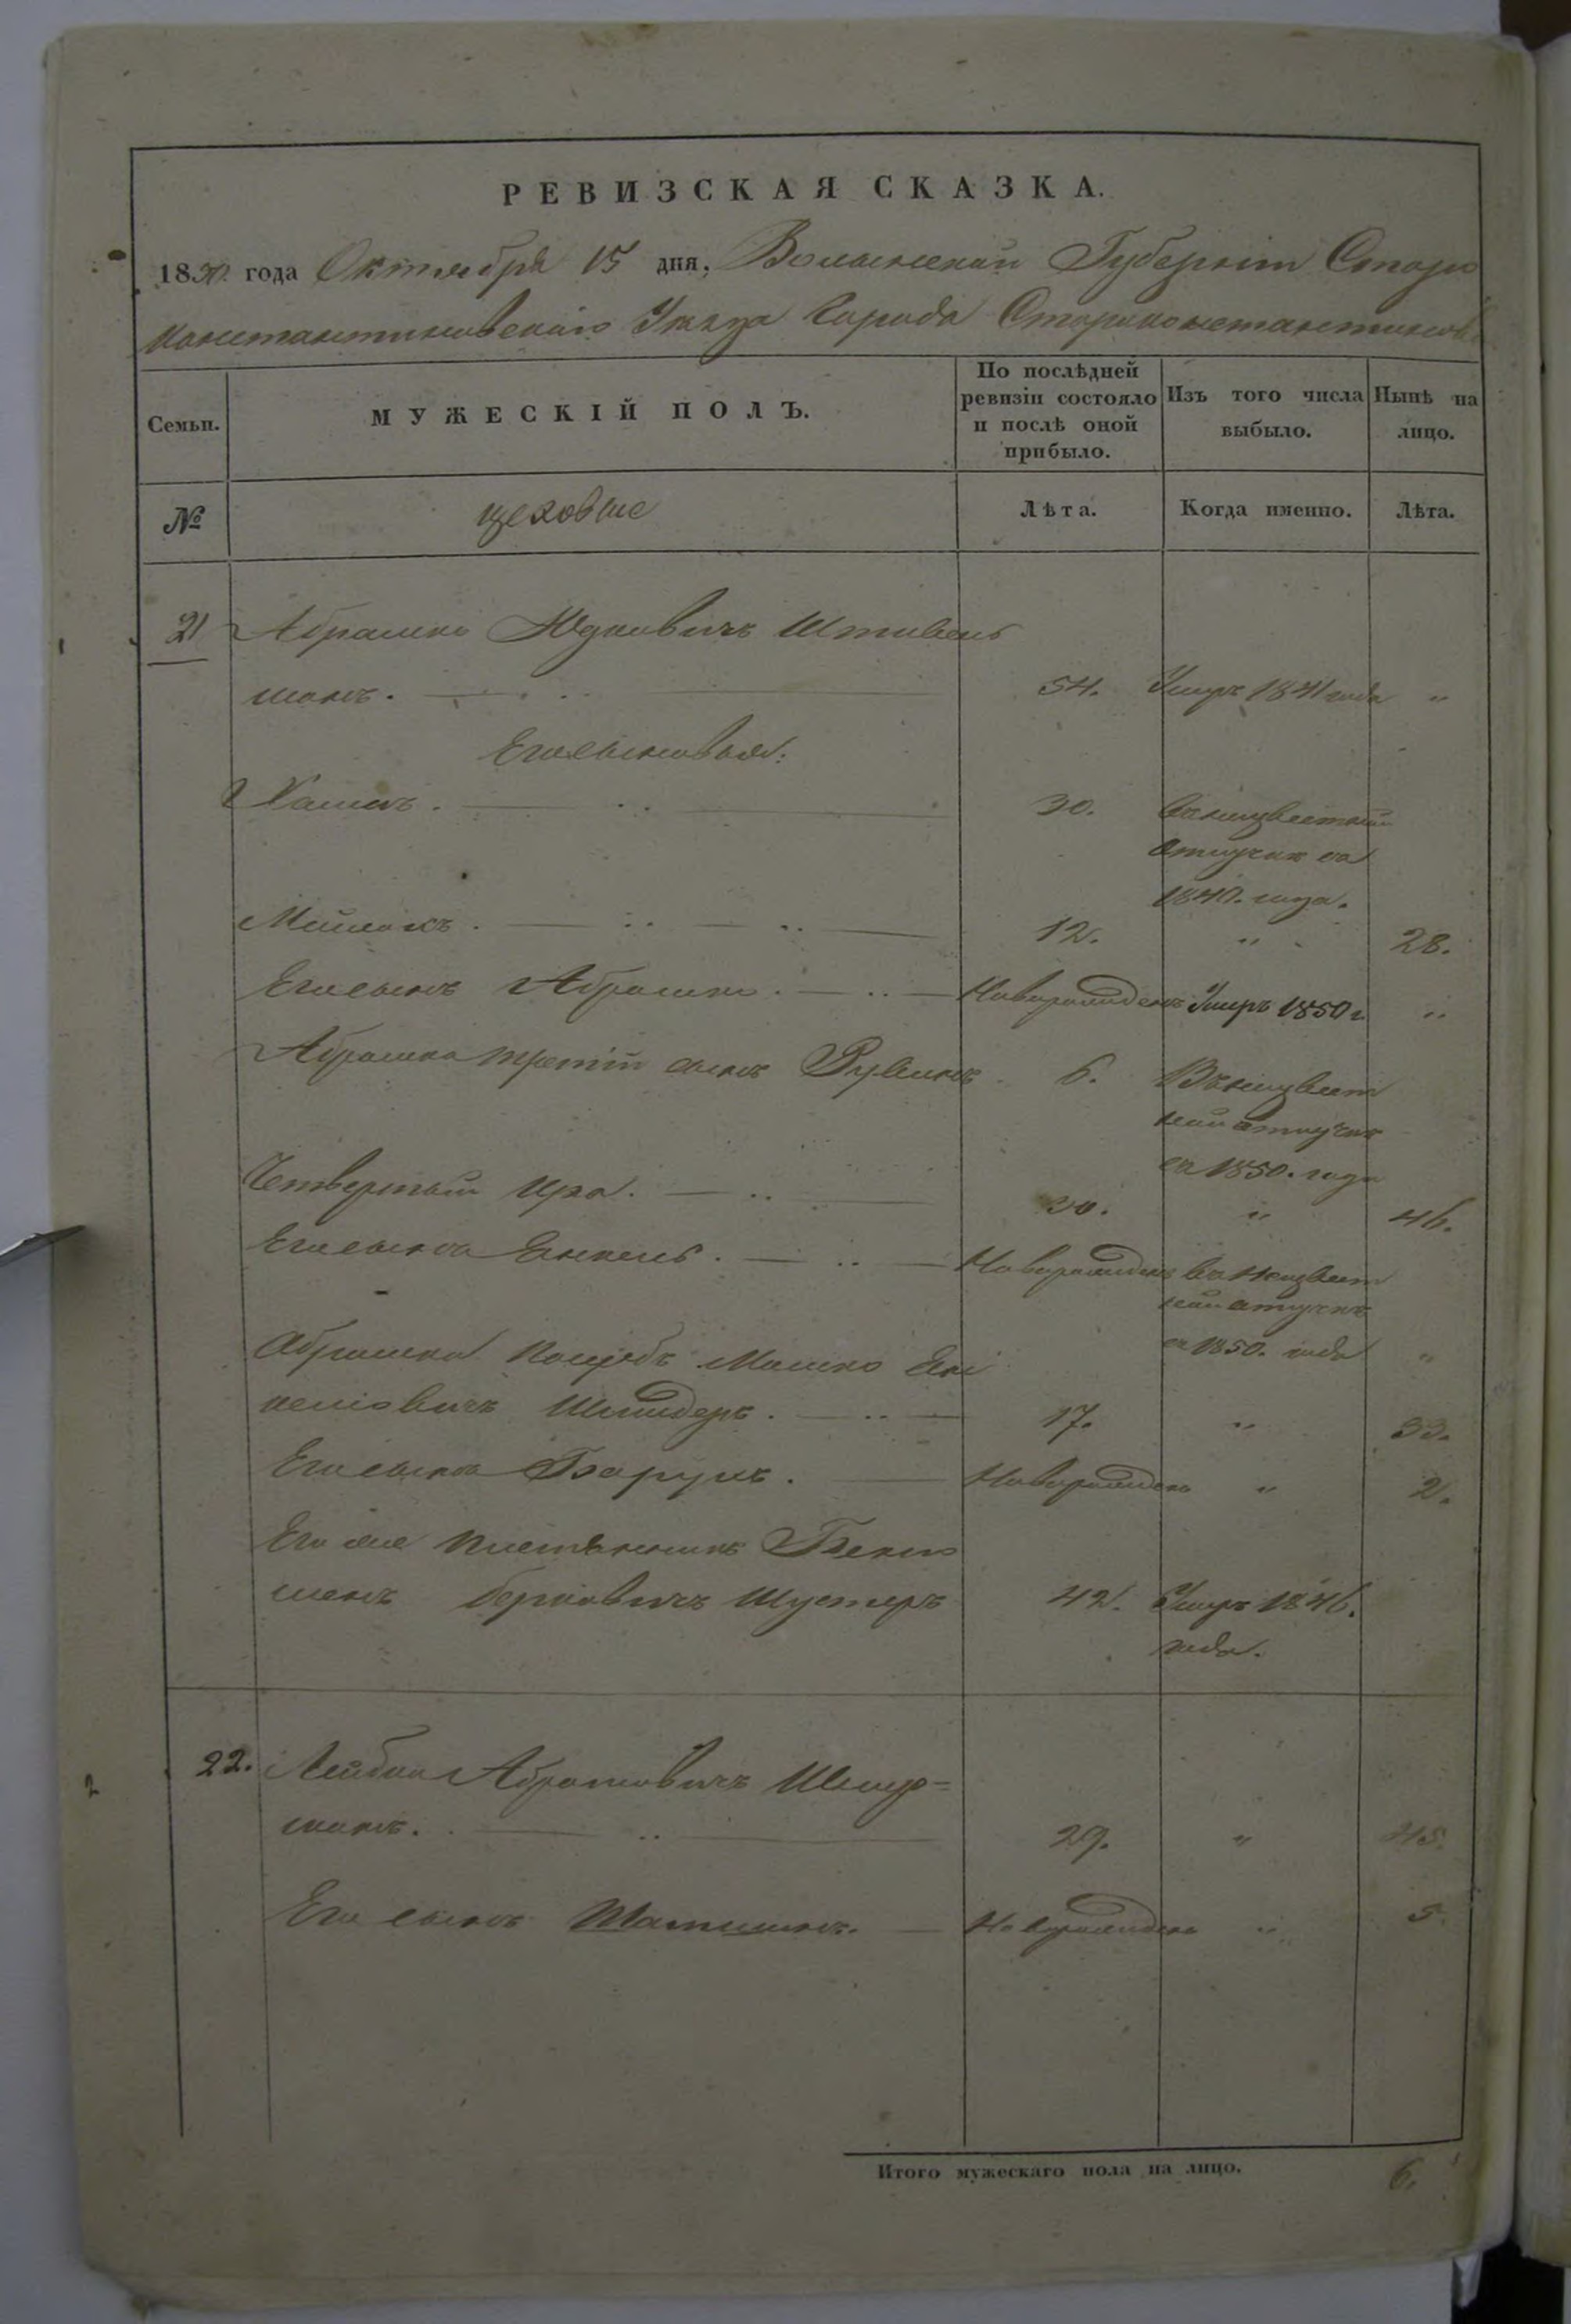 РЕВИЗСКАЯ СКАЗКА.
1850 года Октября 15 дня, Волынской Губерніи Старо
константиновскаго Уезда Города Староконстантинова
Семьи. МУЖЕСКІЙ ПОЛЪ. По послѣдней ревизіи состояло и послѣ оной прибыло. Изъ того числа выбыло. Нынѣ на лицо.
№ цеховые Лѣта. Когда именно. Лѣта.
21 Абрамко Юдковичъ
манъ. 54. Умръ 1841 года "
Его сыновья:
30. въ неизвестной
отлучке съ
1840. года.
12. " 28.
Его сынъ Абрамко. Новорожденъ Умеръ 1850 г. "
Абрамка третій сынъ Рувинъ 6. Въ неизвест
ной отлучке
съ 1850. года
Четвертый 30. " 46.
Его сынъ Янкель. Новорожденъ въ неизвест
ной отлучке
съ 1850. года "
Абрамка Мошко Ян
келіовичъ Шнайдеръ. 17. " 33.
Его сынъ Борухъ. Новорожденъ " 2.
Его же племянникъ
Берковичъ Шустеръ 42. Умръ 1846.
года.
22. Лейбка Абрамовичъ
манъ. 29. " 45.
Его сынъ Новорожденъ " 5.
Итого мужескаго пола на лицо. 6.